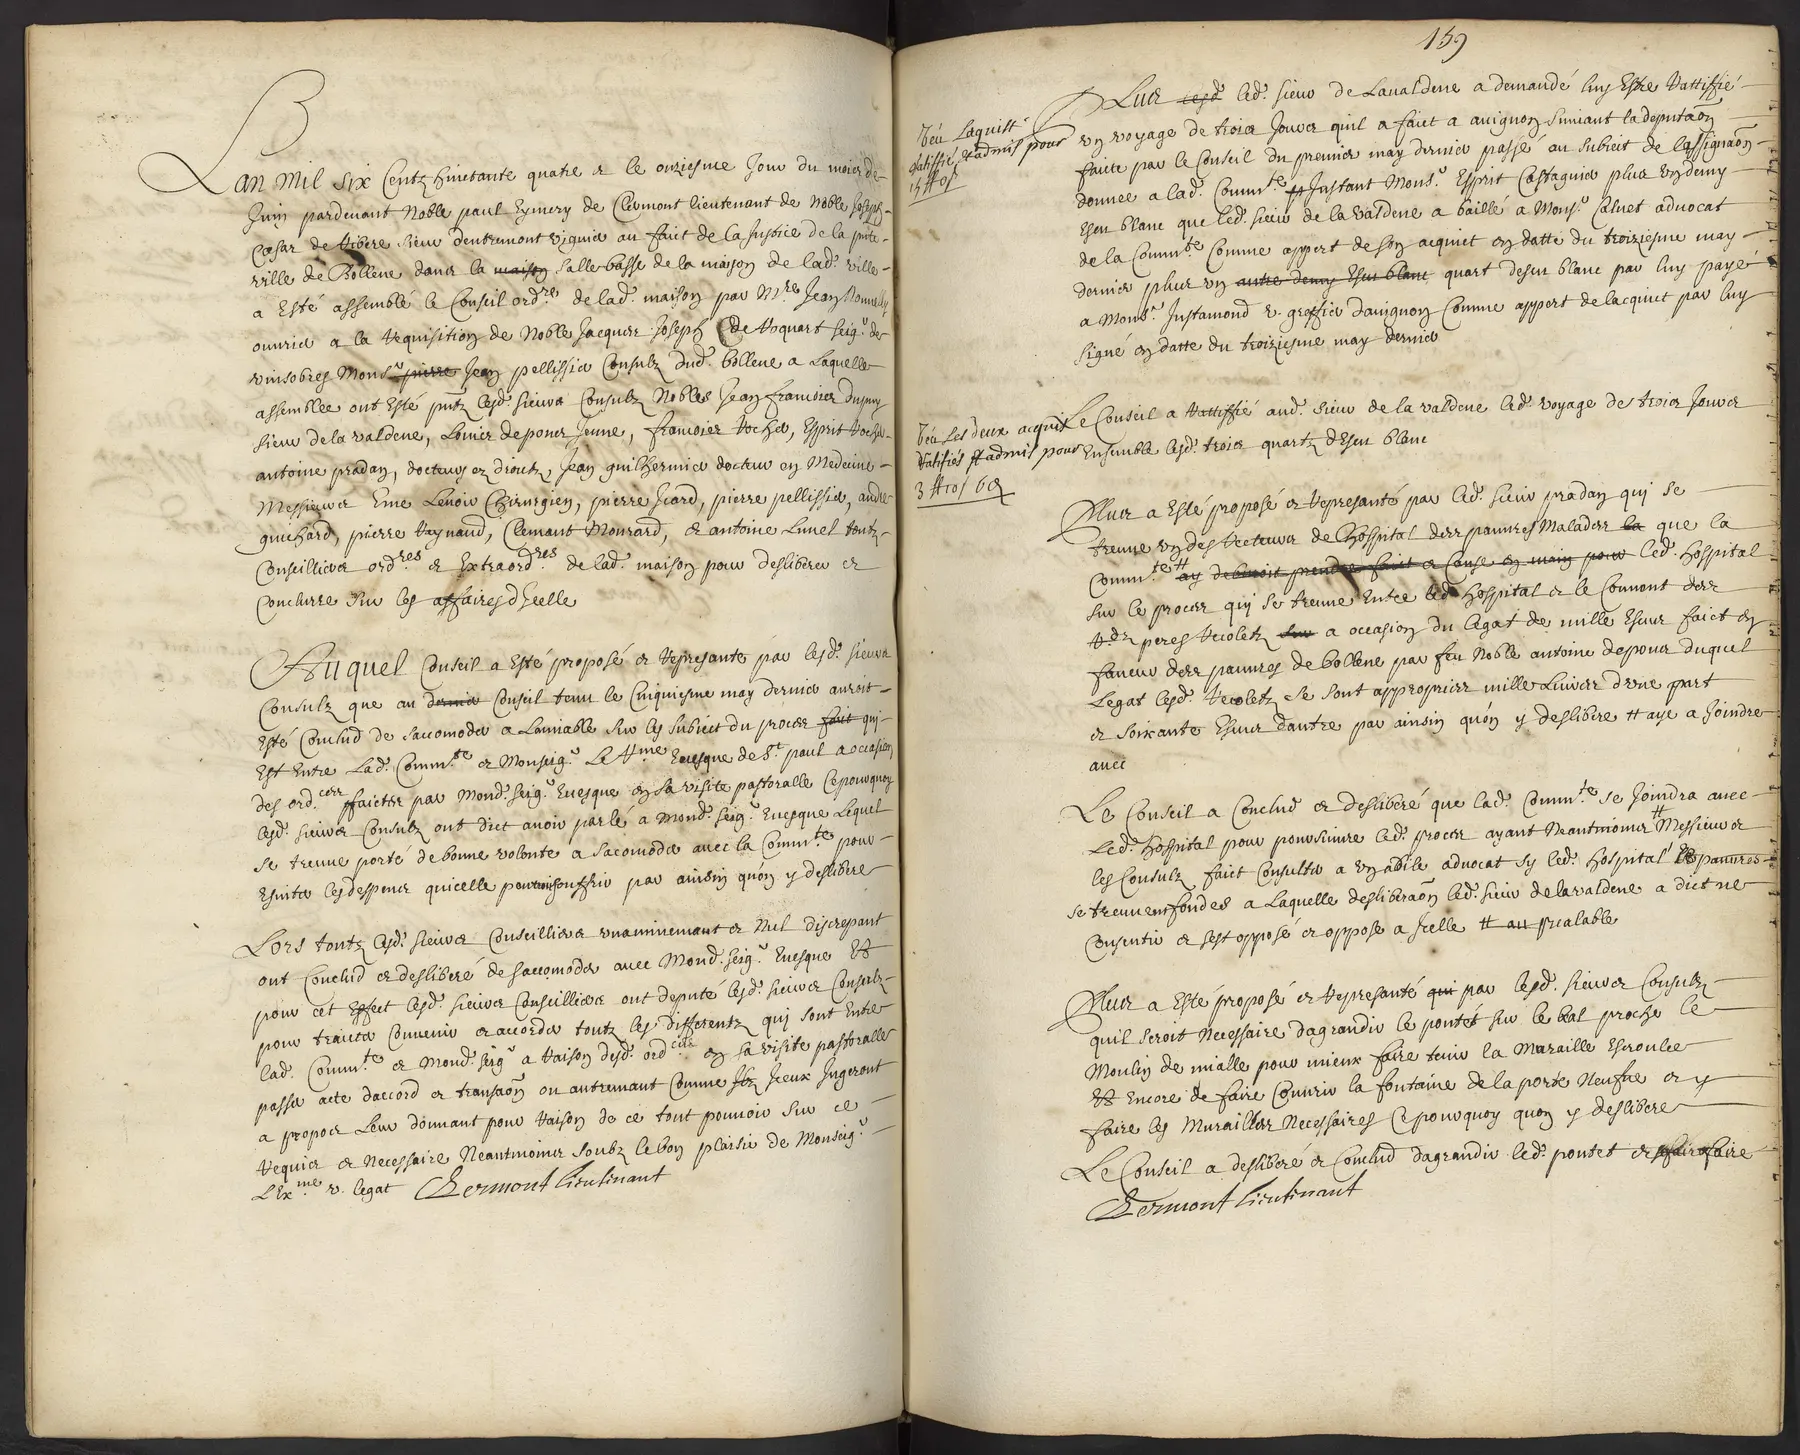 Lan mil six centz huictante quatre et le onziesme Jour du mois de
Juin pardevant Noble paul Eymery de Clermont lieutenant de Noble Joseph
Cæsar de Vibere sieur dentremont viguier au faict de la Justice de la pnte
ville de Bollene dans la maison salle basse de la maison de lad. ville
a Esté assemblé le Conseil ordre de lad. maison par Mre Jean
ouurier a la Requisition de Noble Jacques Joseph de seigr de
vinsobres Monsr pierre Jean pellissier Consulz dud. bollene a Laquelle
assemblee ont Esté pntz lesd. sieurs Consulz Nobles Jean francois dupuy
sieur de la valdene, Louis depons Jeune, francois Rocher, Esprit Rocher
antoine pradan, docteurs ez droictz, Jean guilhermier docteur en Medecine
Messieurs Eme Lenoir Chirurgien, pierre Icard, pierre pellissier, andre
guichard, pierre Raynaud, Clemant Mourard, et antoine Lunel toutz
Conseilliers ordres et Extraordres de lad. maison pour deslibera et
Conclurre sur les affaires dIcelle
Auquel Conseil a Esté proposé et Represanté par lesd. sieurs
Consulz que au dernier Conseil tenu le Cinquiesme may dernier auroit
Esté Conclud de saccomoder a Lamiable sur les subiect du proces fait qui
Est Entre Lad. Commte et Monseigr Le Rme Euesque de St paul a occasion
des ord.ces faictes par Mond. seigr Euesque en sa visite pastoralle Cepourquoy
lesd. sieurs Consulz ont dict auoir parlé a Mond. seigr Euesque Lequel
se treuue porté de bonne volonte a sacomoder auec la Commte pour
Esuiter les despences quicelle pourroit souffrir par ainsin quon y deslibere
Lors toutz lesd. sieurs Conseilliers vnaninemant et Nul discrepant
ont Conclud et deslibéré de saccomoder auec Mond. seigr Euesque Et
pour cet Effect lesd. sieurs Conseilliers ont deputé lesd. sieurs Consulz
pour traicter Conuenir et accorder toutz les differentz qui sont Entre
lad. Commte et Mond. seigr a Raison desd. ordces en sa visite pastoralle
passer acte daccord et transaon ou autremant Comme Ilz Iceux Jugeront
a propos Leur donnant pour Raison de ce tout pouuoir sur ce
Requis et Necessaire Neantmoins soubz le bon plaisir de Monseigr
LExme v. legat Clermont lieutenant
159
Plus lesd. led. sieur de Laualdene a demandé luy Estre Rattiffié
vn voyage de trois Jours quil a faict a auignon suiuant la deputaon
faicte par le Conseil du premier may dernier passé au subiect de lassignaon
donnee a lad. Commte Instant Monsr Esprit Castagnier plus vn demy
Escu blanc que led. sieur de la valdene a baillé a Monsr Caluet aduocat
de la Commte Comme appert de son acquict en datte du troiziesme may
dernier plus vn autre demy Escu blanc quart descu blanc par luy payé
a Monsr Justamond v. greffier dauignon Comme appert de lacquict par luy
signé en datte du troiziesme may dernier
Veu Laquitt
Ratiffié et admis pour
Le Conseil a Rattiffié aud. sieur de la valdene led. voyage de trois Jours
Ensemble lesd. trois quartz dEscu blanc
Veu Les deux acquits
Ratifiés et admis pour
Plus a Esté proposé et Represanté par led. sieur pradan qui se
treuue vn des Recteurs de lhospital des pauures Malades la que la
Commte ay debuoit prendre faict et Cause en main pour led. hospital
sur le proces quy se treuue Entre led. hospital et le Couuent des
Rdz peres Recoletz sur a occasion du legat de mille Escus faict en
faueur des pauures de bollene par feu Noble antoine depons duquel
Legat lesd. Recoletz se sont appropries mille Liures dune part
et soixante Escus dautre par ainsin quon y deslibere # aye a Joindre
auec
Le Conseil a Conclud et deslibéré que lad. Commte se Joindra auec
Led. hospital pour poursuiure led. proces ayant Neantmoins # Messieurs
les Consulz faict Consulter a vn abile aduocat sy led. hospital et pauures
se treuuent fondes a Laquelle desliberaon led. sieur de lavaldene a dict ne
Consentir et sest opposé et oppose a Icelle # au prealable
Plus a Esté proposé et Represanté qui par lesd. sieurs Consulz
quil seroit Necessaire dagrandir le pontet sur le bal proche le
Moulin de mialle pour mieux faire tenir la Muraille Escroulee
Et Encore de faire Couurir la fontaine de la porte Neufue et y
faire les Murailles Necessaires Cepourquoy quon y deslibere
Le Conseil a deslibéré et Conclud dagrandir led. pontet et faire
Clermont lieutenant